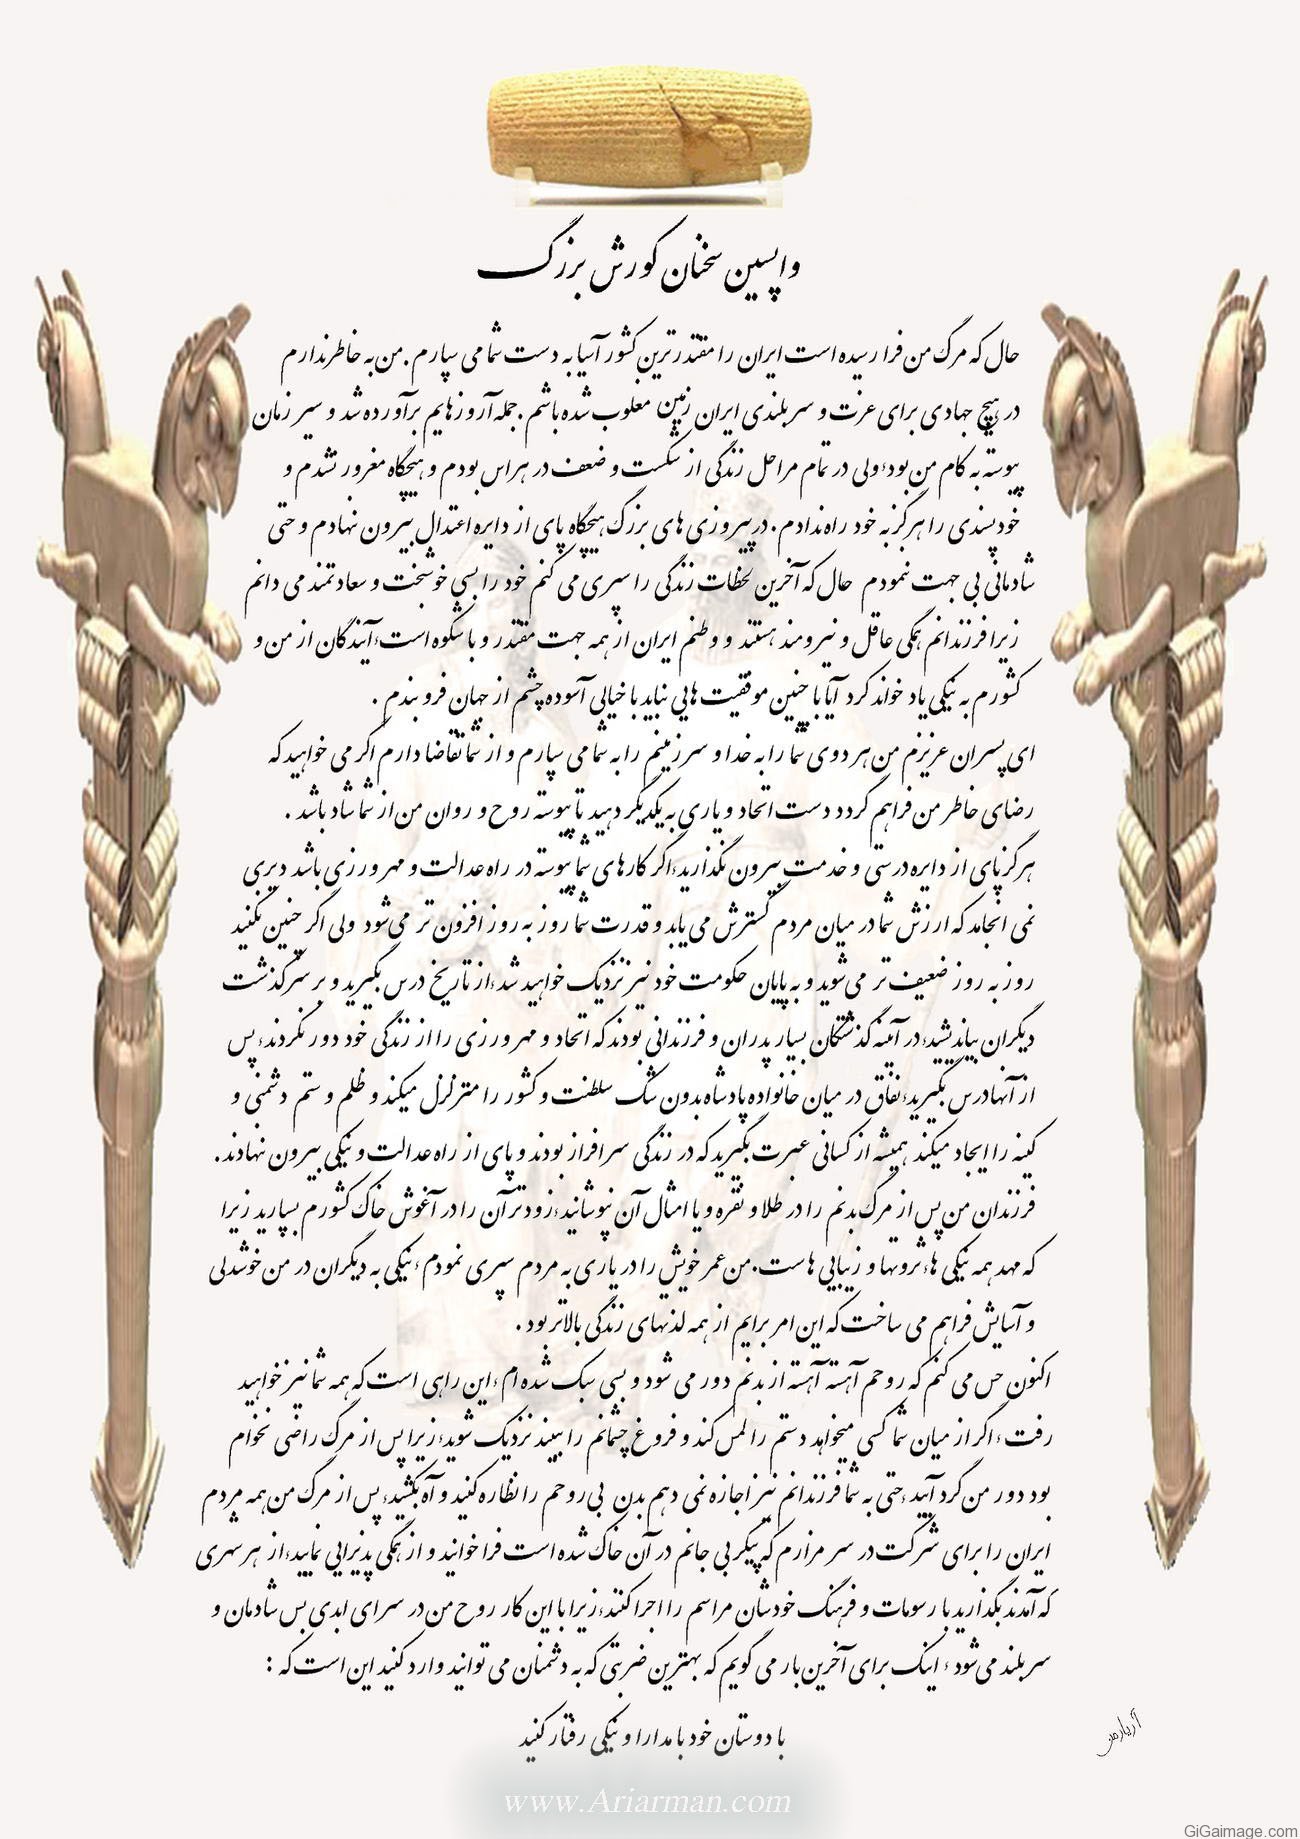 واپسین سخنان کورش بزرگ
حال که مرگ من فرا رسیده است ایران را مقتدرترین کشور آسیا به دست شما می سپارم . من به خاطر ندارم
در هیچ جهادی برای عزت و سربلندی ایران زمین مغلوب شده باشم . جمله آروزهایم برآورده شد و سیر زمان
پیوسته به کام من بود ، ولی در تمام مراحل زندگی از شکست و ضعف در هراس بودم و هیچگاه مغرور نشدم و
خودپسندی را هرگز به خود راه ندادم . در پیروزی های بزرگ هیچگاه پای از دایره اعتدال بیرون نهادم و حتی
شادمانی بی جهت ننمودم حال که آخرین لحظات زندگی را سپری می کنم خود را بسی خوشبخت و سعادتمند می دانم
زیرا فرزندانم همگی عاقل و نیرومند هستند و وطنم ایران از همه جهت مقتدر و با شکوه است ، آیندگان از من و
کشورم به نیکی یاد خواند کرد آیا با چنین موفقیت هایی نباید با خیالی آسوده چشم از جهان فرو بندم .
ای پسران عزیزم من هر دوی شما را به خدا و سرزمینم را به شما می سپارم و از شما تقاضا دارم اگر می خواهید که
رضای خاطر من فراهم گردد دست اتحاد و یاری به یکدیگر دهید تا پیوسته روح و روان من از شما شاد باشد .
هرگز پای از دایره درستی و خدمت بیرون نگذارید ، اگر کارهای شما پیوسته در راه عدالت و مهرورزی باشد دیری
نمی انجامد که ارزش شما در میان مردم گسترش می یابد و قدرت شما روز به روز افزون تر می شود ولی اگر چنین نکنید
روز به روز ضعیف تر می شوید و به پایان حکومت خود نیز نزدیک خواهید شد ، از تاریخ درس بگیرید و بر سرگذشت
دیگران بیاندیشید ، در آئینه گذشتگان بسیار پدران و فرزندانی بودند که اتحاد و مهرورزی را از زندگی خود دور نکردند ، پس
از آنها درس بگیرید ، نفاق در میان خانواده پادشاه بدون شک سلطنت و کشور را متزلزل میکند و ظلم و ستم دشمنی و
کینه را ایجاد میکند همیشه از کسانی عبرت بگیرید که در زندگی سرافراز بودند و پای از راه عدالت و نیکی بیرون نهادند .
فرزندان من پس از مرگ بدنم را در طلا و نقره و یا امثال آن نپوشانید ، زودتر آن را در آغوش خاک کشورم بسپارید زیرا
که مهد همه نیکی ها ، ثروتها و زیبایی هاست . من عمر خویش را در یاری به مردم سپری نمودم ، نیکی به دیگران در من خوشدلی
و آسایش فراهم می ساخت که این امر برایم از همه لذتهای زندگی بالاتر بود .
اکنون حس می کنم که روحم آهسته آهسته از بدنم دور می شود و بسی سبک شده ام ، این راهی است که همه شما نیز خواهید
رفت ، اگر از میان شما کسی میخواهد دستم را لمس کند و فروغ چشمانم را ببیند نزدیک شوید ، زیرا پس از مرگ راضی نخوام
بود دور من گرد آئید ، حتی به شما فرزندانم نیز اجازه نمی دهم بدن بی روحم را نظاره کنید و آه بکشید ، پس از مرگ من همه مردم
ایران را برای شرکت در سر مزارم که پیکر بی جانم در آن خاک شده است فرا خوانید و از همگی پذیرایی نمایید ، از هر شهری
که آمدند بگذارید با رسومات و فرهنگ خودشان مراسم را اجرا کنند ، زیرا با این کار روح من در سرای ابدی بس شادمان و
سربلند می شود ، اینک برای آخرین بار می گویم که بهترین ضربتی که به دشمنان می توانید وارد کنید این است که :
با دوستان خود با مدارا و نیکی رفتار کنید
آریارمن
www.Ariarman.com
GiGaimage.com